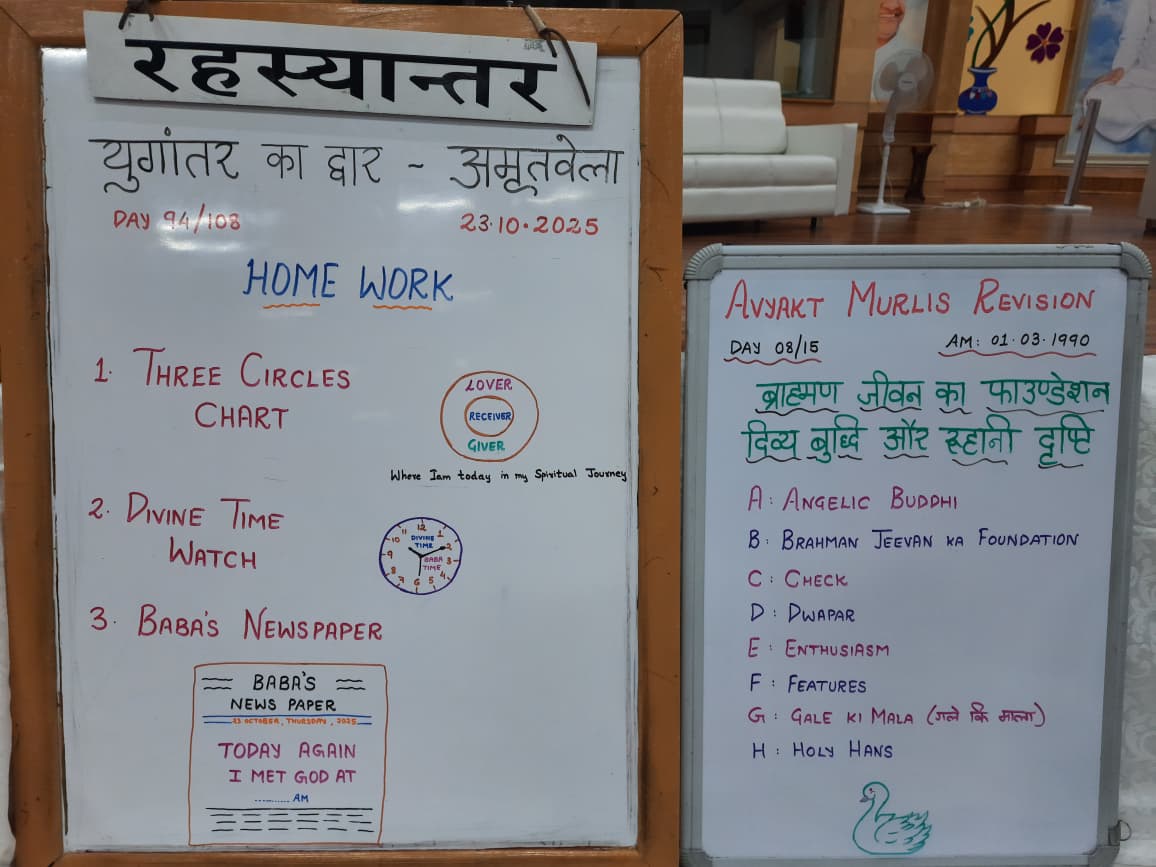 रहस्यान्तर
युगांतर का द्वार - अमृतवेला
DAY 94/108
23.10.2025
HOME WORK
1. THREE CIRCLES
CHART
LOVER
RECEIVER
GIVER
Where Iam today in my Spiritual Journey
2. DIVINE TIME
WATCH
12
1
2
3
4
5
6
7
8
9
10
11
DIVINE
TIME
BABA
TIME
3. BABA'S NEWSPAPER
BABA'S
NEWS PAPER
23 OCTOBER, THURSDAY, 2025
TODAY AGAIN
I MET GOD AT
.......... AM
AVYAKT MURLIS REVISION
DAY 08/15
AM: 01.03.1990
ब्राह्मण जीवन का फाउण्डेशन
दिव्य बुद्धि और रूहानी दृष्टि
A: ANGELIC BUDDHI
B: BRAHMAN JEEVAN KA FOUNDATION
C: CHECK
D: DWAPAR
E: ENTHUSIASM
F: FEATURES
G: GALE KI MALA (गले कि माला)
H: HOLY HANS